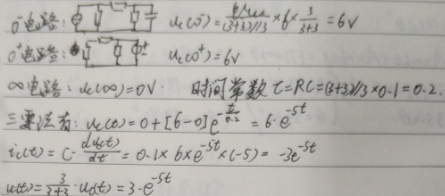 0⁻电路: uc(0⁻) = 6/((3+3)//3 × 6 × 3/(3+3) = 6V
0⁺电路: uc(0⁺) = 6V
∞电路: uc(∞) = 0V. 时间常数 τ=RC=(3+3)//3×0.1=0.2.
三要法有: uc(t) = 0+[6-0]e^(-t/0.2) = 6·e^(-5t)
ic(t) = C·duc(t)/dt = 0.1×6×e^(-5t)×(-5) = -3e^(-5t)
u(t) = 3/(3+3)·uc(t) = 3·e^(-5t)